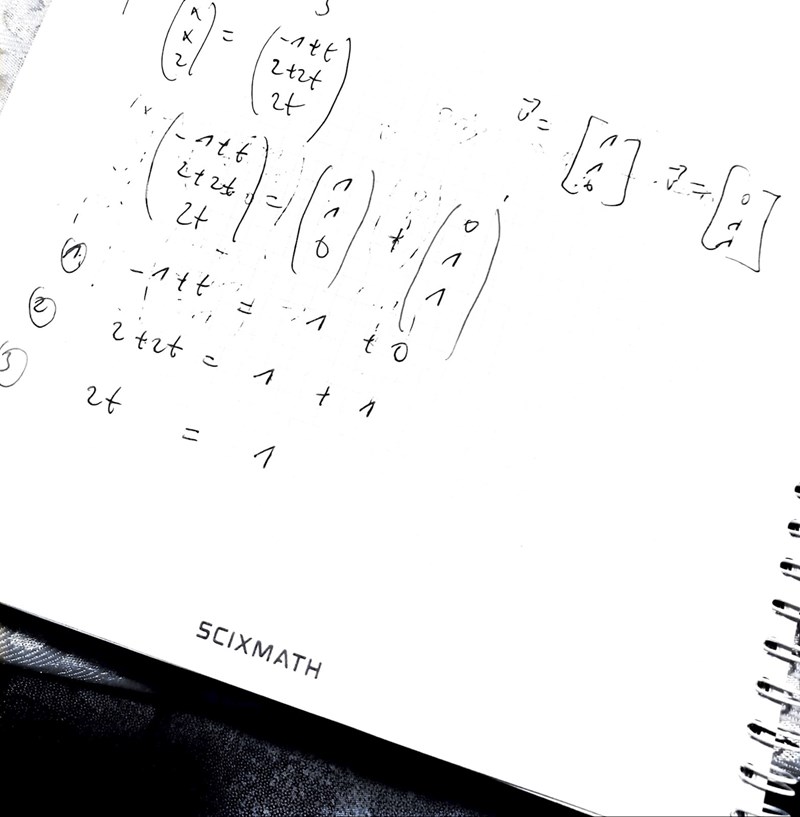 (x x 2) = (-1+t 2+2t 2t)
v⃗ = [1 1 0] v⃗ = [0 1 1]
(-1+t 2+2t 2t) = (1 1 0) + (0 1 1)
① -1+t = 1 + 0
② 2+2t = 1 + 1
③ 2t = 1
SCIXMATH